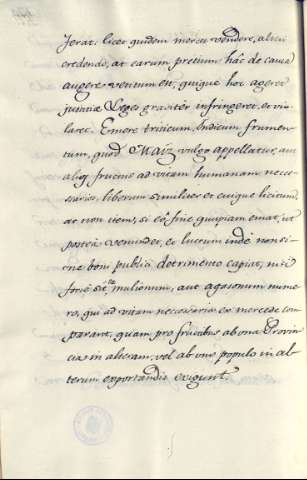 ferat. licet quidem merces vendere, alicui
credendo, at earum pretium hâc de causa
augere vetitum est; quique hoc ageret
justitiæ Leges gravitèr infringeret, et vio-
laret. Emere triticum, Indicum frumen-
tum, quod Maiz vulgo appellatur, aut
alios fructus ad vitam humanam neces-
sarios, liberum similiter et cuique licitum,
at non item, si eo fine quispiam emat, ut
posteà venundet, et lucrum indè non si-
ne boni publici detrimento capiat, nisi
fortè sit mulionum, aut agasonum nume-
ro, qui ad vitam necessarias ex mercede com-
parant, quam pro fructibus ab una Provin-
cia in alteram, vel ab uno populo in al-
terum exportandis exigunt.